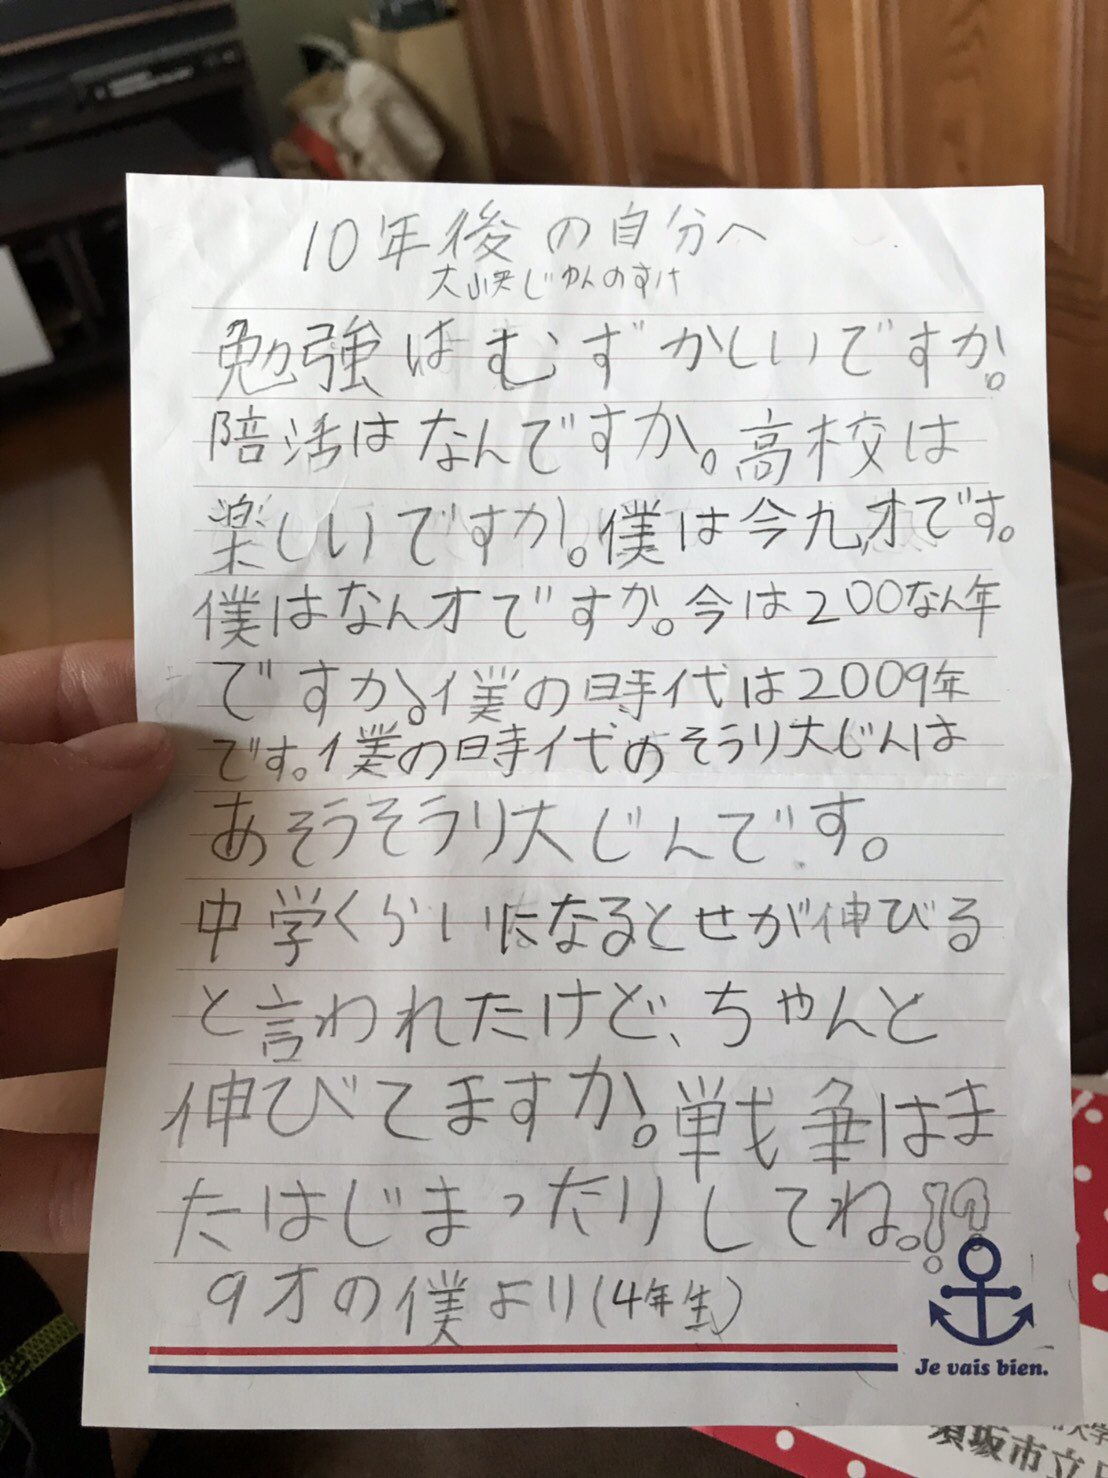 10年後の自分へ
大峡じゅんのすけ
勉強はむずかしいですか。
陪活はなんですか。高校は
楽しいですか。僕は今九才です。
僕はなん才ですか。今は200なん年
ですか。僕の時代は2009年
です。僕の時代のそうり大じんは
あそうそうり大じんです。
中学くらいになるとせが伸びる
と言われたけど、ちゃんと
伸びてますか。戦争はま
たはじまったりしてね。!?
9才の僕より(4年生)
Je vais bien.
須坂市立